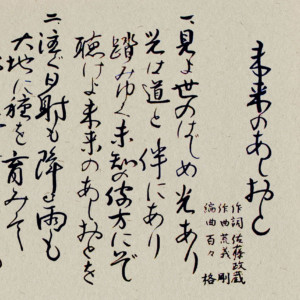 未来のあしおと
作詞 佐藤政蔵
作曲 荒義 剛
編曲 百々 格
一、見よ世のはじめ光あり
光は道と伴にあり
踏みゆく未知の彼方にぞ
聴けよ未来のあしおとを
二、注ぐ日射も降る雨も
大地に種を育みて